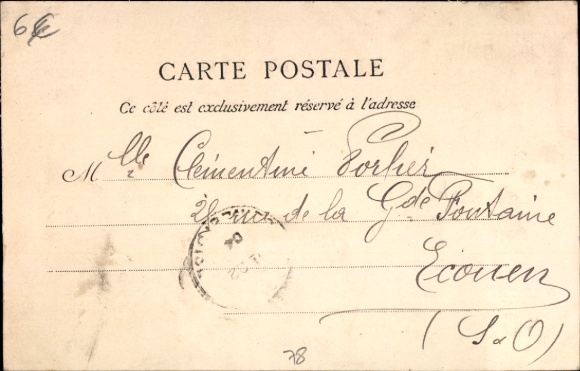 6
CARTE POSTALE
Ce côté est exclusivement réservé à l'adresse
Mlle Clémentine Porhier
28 rue de la Gde Fontaine
Ecouen
(S & O)
78